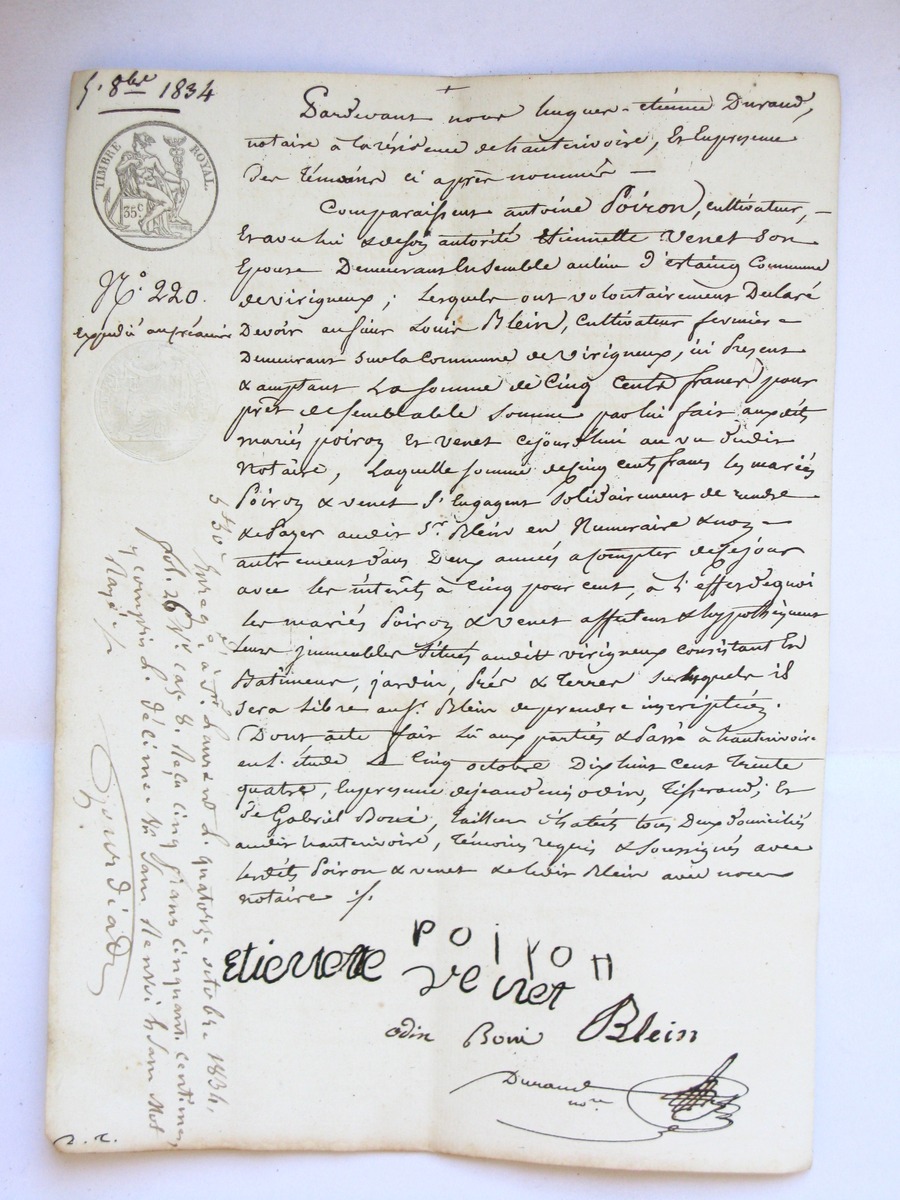 5. 8bre 1834
TIMBRE ROYAL.
35c
N° 220.
expédié au créancier
Pardevant nous hugues-etienne Durand,
notaire à la résidence de hauterivoire, Et en presence
Des Témoins ci après nommés —
Comparaissent antoine Poiron, cultivateur, —
Et avec lui & de son autorité Etiennette Venet Son
Epouse Demeurant Ensemble au lieu d'estaing Commune
de virigneux; Lesquels ont volontairement Declaré
Devoir au sieur Louis Blein, Cultivateur fermier =
Demeurant sur la Commune de virigneux, ici Present
& acceptant La somme de Cinq Cents francs pour
prêt de semblable somme par lui fait auxdits
mariés poiron Et venet cejourd'hui au vu dudit
Notaire, Laquelle somme de cinq cents francs les mariés
Poiron & venet s'Engagent Solidairement de rendre
& de Payer audit Sr. Blein en Numeraire & non =
autrement dans Deux années a compter de Ce jour
avec les intérêts à Cinq pour cent, à l'effet de quoi
les mariés Poiron & venet affectent & hypothèquent
Leurs immeubles Situés audit virigneux consistant En
Batiment, jardin, Prés & Terres sur lesquels il
sera libre au sr. Blein de prendre inscription.
Dont acte fait Lu aux parties & Passé à hauterivoire
en l'étude Le Cinq octobre Dix huit Cent trente
quatre, En presence de jean denis odin, Tisserand, Et
de Gabriel Boni, taillieur d'habits tous Deux domiciliés
audit hauterivoire, Témoins requis & Soussignés avec
lesdits Poiron & venet & ledit Blein avec nous
notaire ./.
Poiron
Etienete Venet
odin Boni Blein
Durand
nore
5f 50c
Enreg.é à St. Laurent L. quatorze octobre 1834,
fol. 26 Vo. case 8. Reçu cinq francs cinquante centimes,
y compris L. décime.